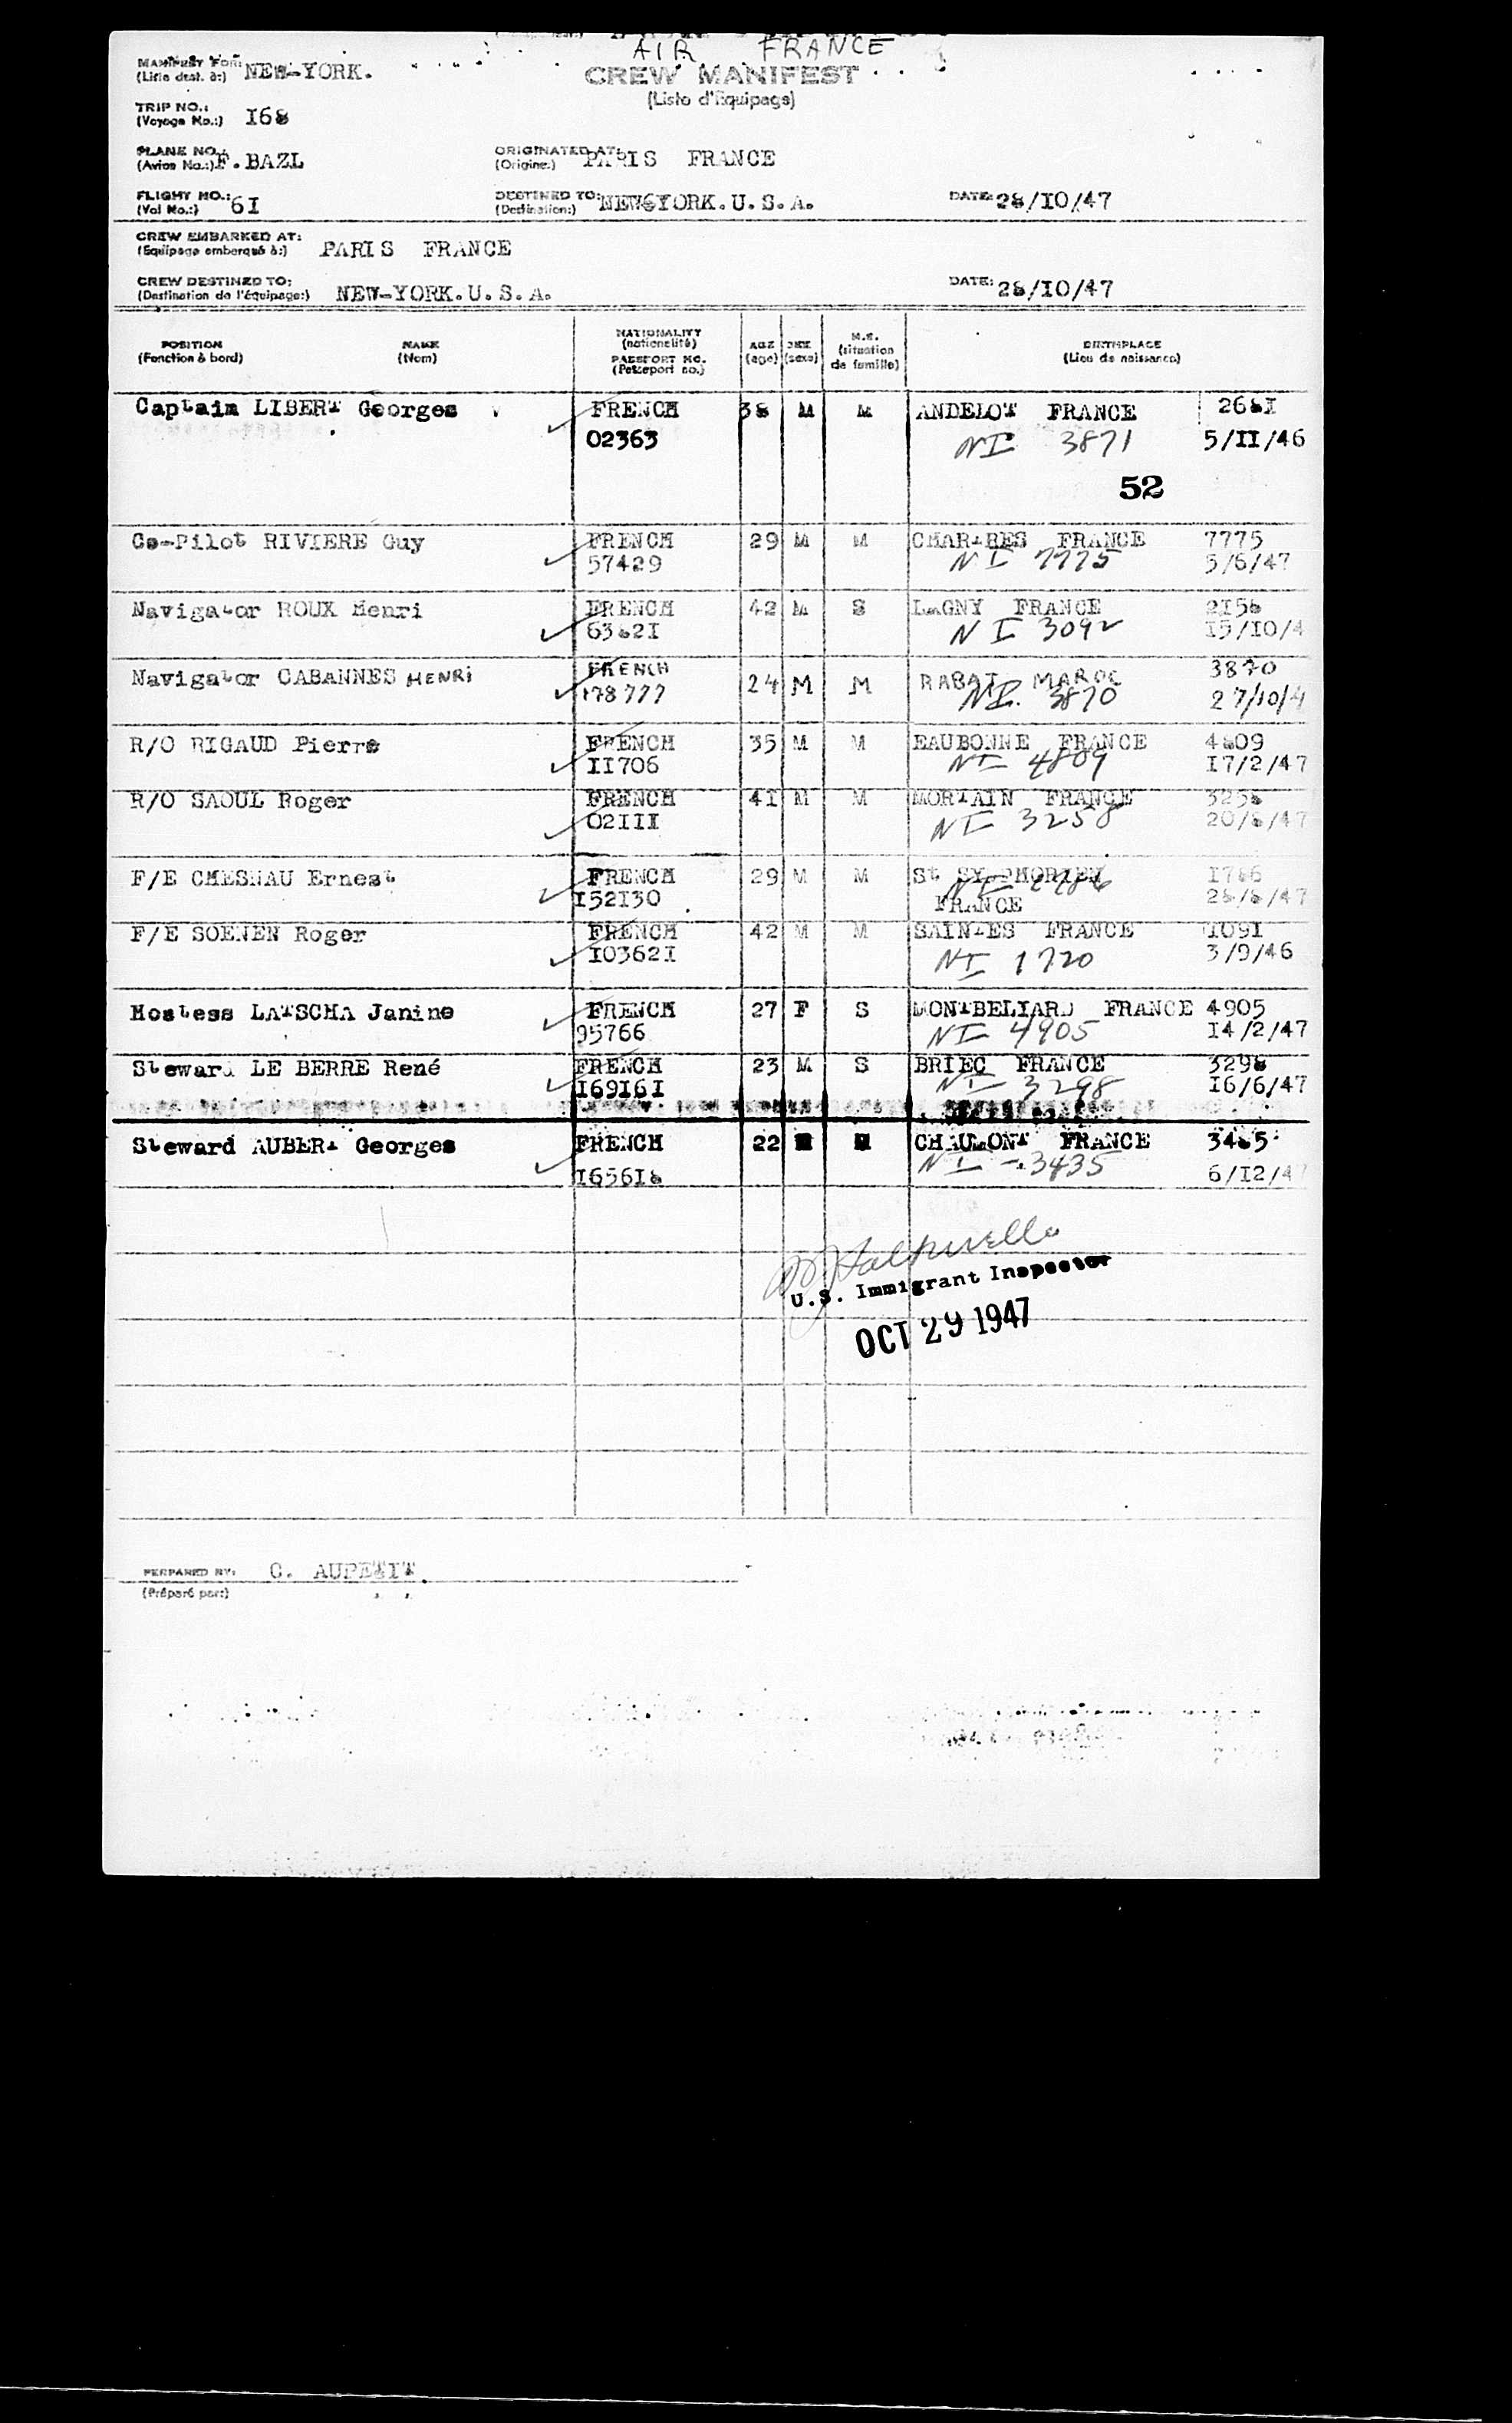 AIR FRANCE
MANIFEST FOR: NEW-YORK.
(Liste dest. à:)
CREW MANIFEST
(Liste d'Equipage)
TRIP NO.: I68
(Voyage No.:)
PLANE NO.: F.BAZL
(Avion No.:)
ORIGINATED AT: PARIS FRANCE
(Origine:)
FLIGHT NO.: 6I
(Vol No.:)
DESTINED TO: NEW YORK.U.S.A.
(Destination:)
DATE: 28/IO/47
CREW EMBARKED AT: PARIS FRANCE
(Equipage embarqué à:)
CREW DESTINED TO: NEW-YORK.U.S.A.
(Destination de l'équipage:)
DATE: 28/IO/47
POSITION
(Fonction à bord)
NAME
(Nom)
NATIONALITY
(nationalité)
PASSPORT NO.
(Passeport no.)
AGE
(age)
SEX
(sexe)
M.S.
(situation
de famille)
BIRTHPLACE
(Lieu de naissance)
Captain LIBERT Georges FRENCH 38 M M ANDELOT FRANCE 268I
02363 NI 3871 5/II/46
52
Co-Pilot RIVIERE Guy FRENCH 29 M M CHARTRES FRANCE 7775
57429 NI 7775 5/6/47
Navigator ROUX Henri FRENCH 42 M S LAGNY FRANCE 2I58
6382I NI 3092 I5/IO/4
Navigator CABANNES HENRI FRENCH 24 M M RABAT MAROC 3870
178777 NI. 3870 27/10/4
R/O RIGAUD Pierre FRENCH 35 M M EAUBONNE FRANCE 4809
II706 NI 4809 I7/2/47
R/O SAOUL Roger FRENCH 4I M M MORTAIN FRANCE 3258
O2III NI 3258 20/8/47
F/E CHESNAU Ernest FRENCH 29 M M St SYMPHORIEN I786
I52I30 NI FRANCE 28/8/47
F/E SOENEN Roger FRENCH 42 M M SAINTES FRANCE I09I
IO362I NI 1720 3/9/46
Hostess LATSCHA Janine FRENCH 27 F S MONTBELIARD FRANCE 4905
95766 NI 4905 I4/2/47
Steward LE BERRE René FRENCH 23 M S BRIEC FRANCE 3298
I69I6I NI 3298 I6/6/47
Steward AUBERT Georges FRENCH 22 CHAUMONT FRANCE 3485
I656I8 NI - 3435 6/I2/47
U.S. Immigrant Inspector
OCT 29 1947
PREPARED BY: C. AUPETIT.
(Préparé par:)